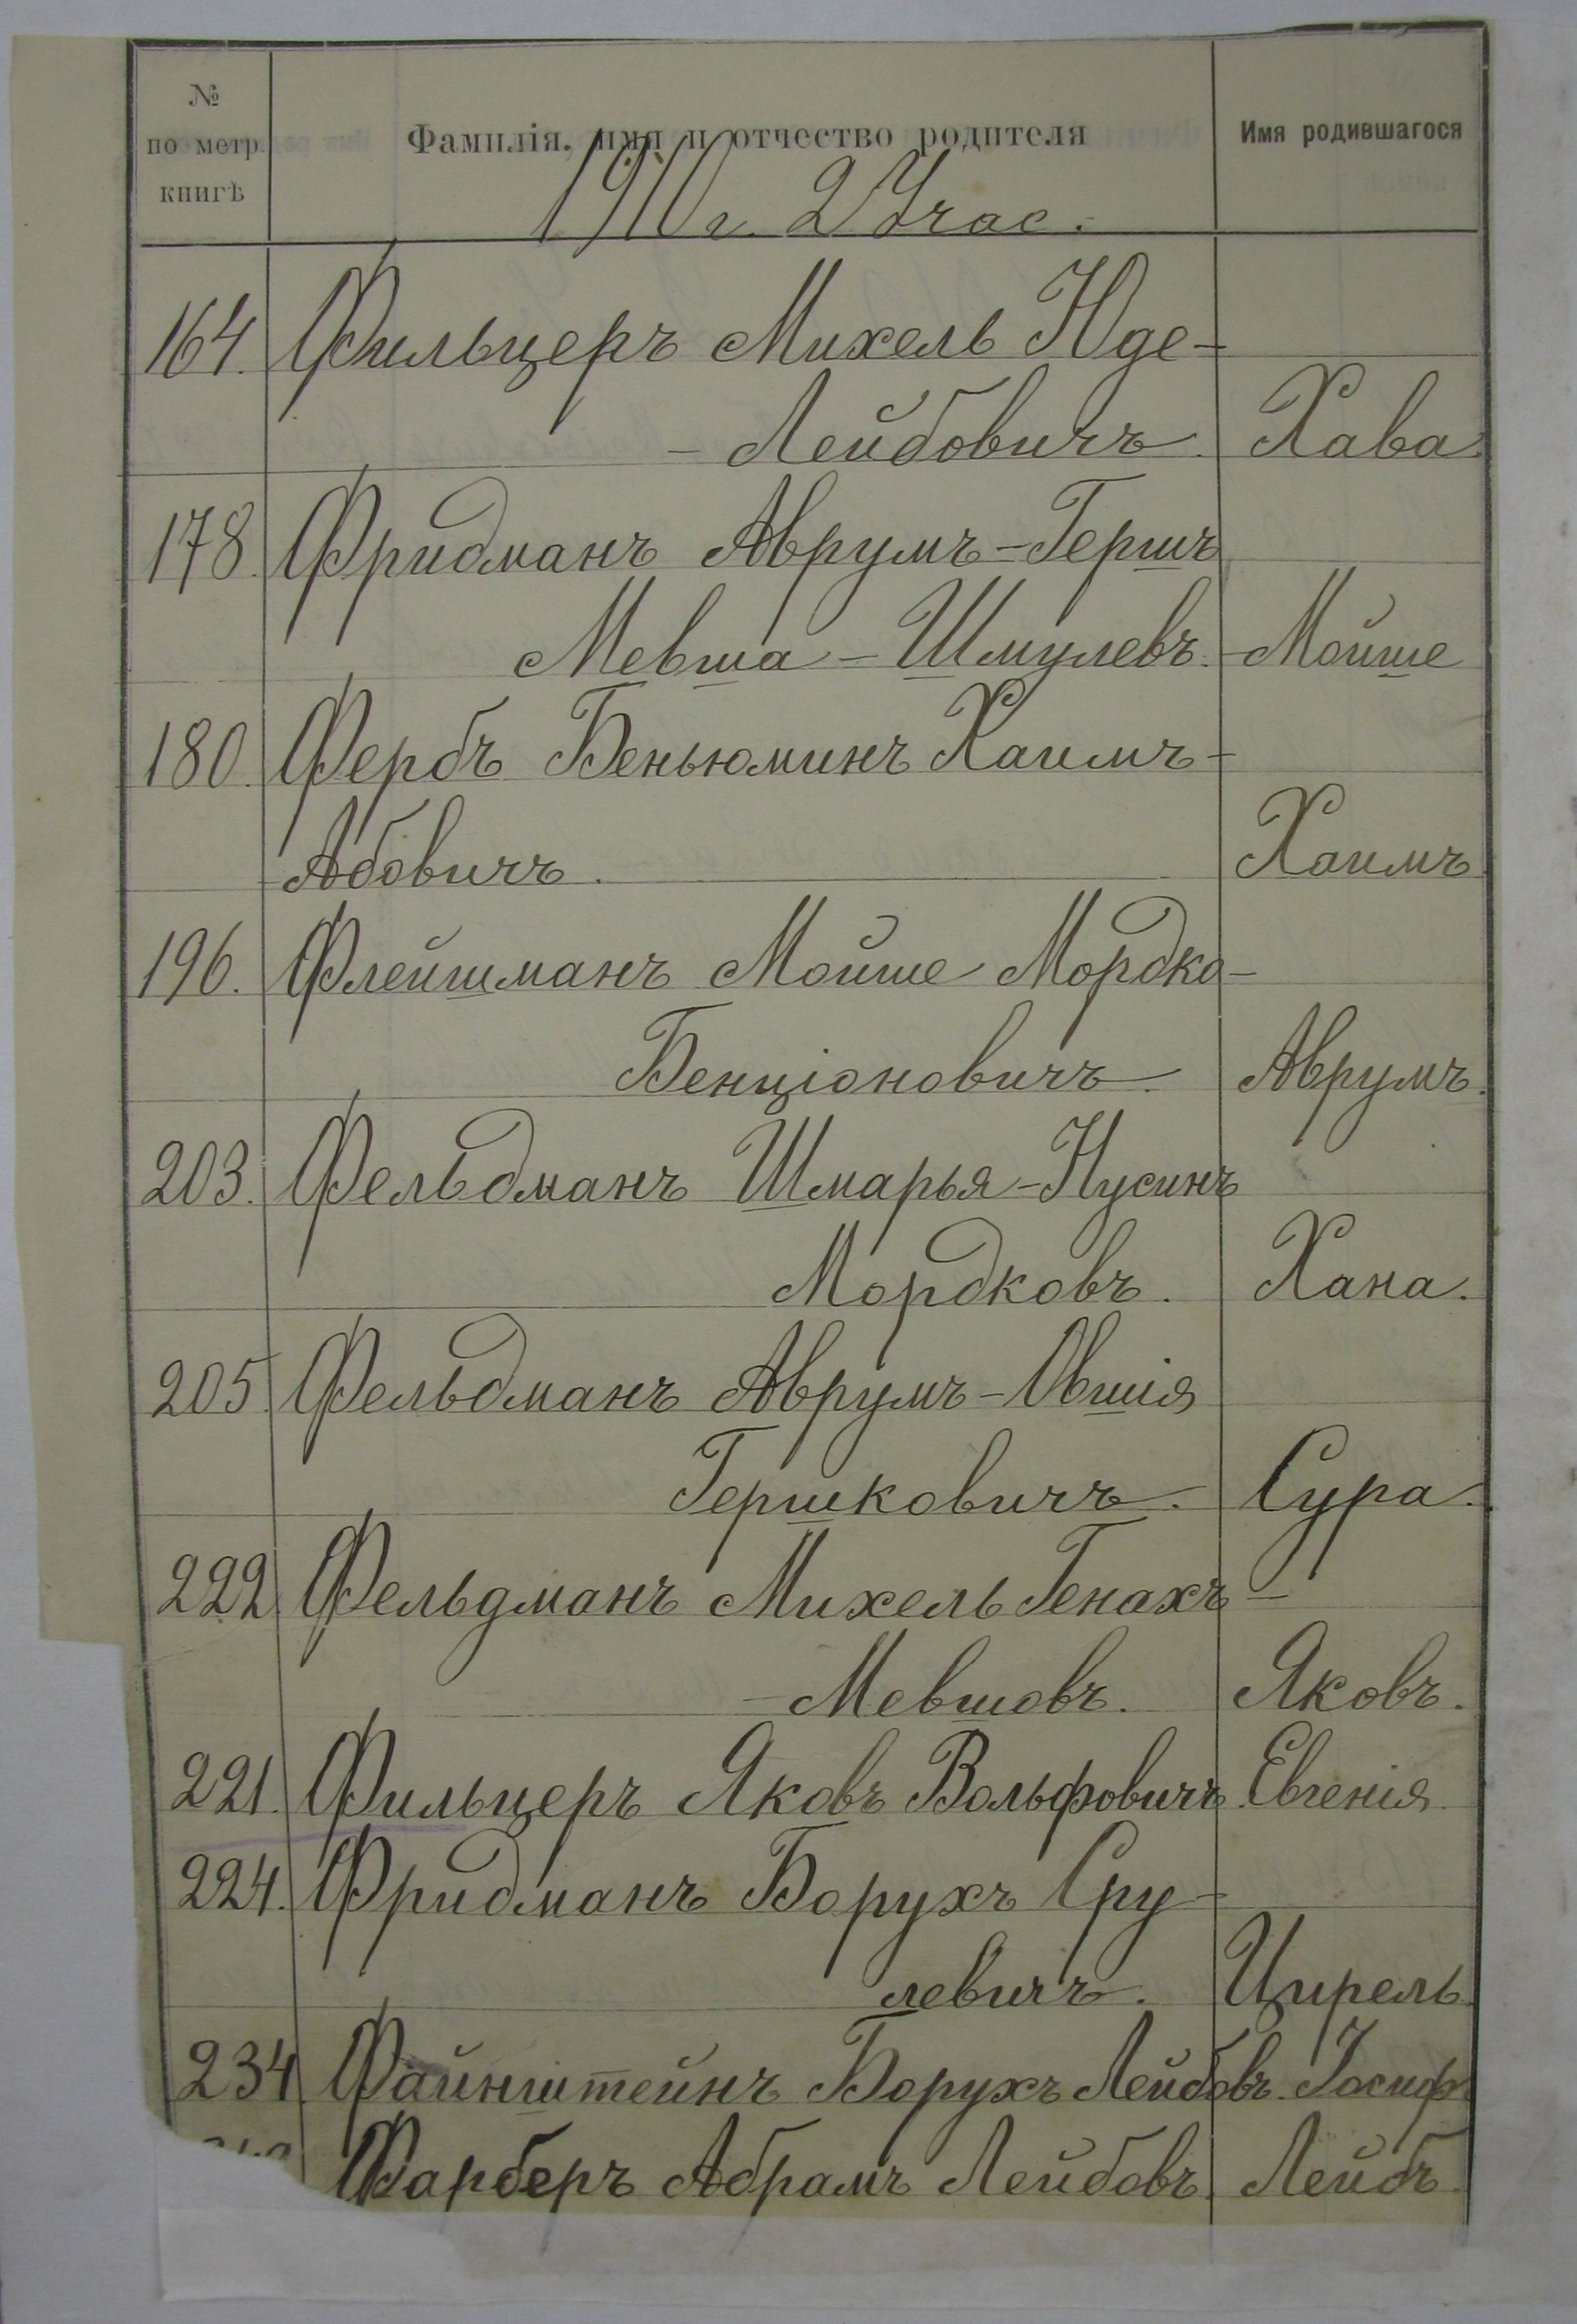 №
по метр.
книгѣ
Фамилія, имя и отчество родителя
Имя родившагося
1910 г. 2 Учас.
164. Фильцеръ Михель Юде-
- Лейбовичъ. Хава.
178. Фридманъ Аврумъ-Гершъ
Мевша-Шмулевъ. Мойше
180. Фербъ Беньюминъ Хаимъ-
Абовичъ. Хаимъ.
196. Флейшманъ Мойше Мордко-
Бенціоновичъ. Аврумъ.
203. Фельдманъ Шмарья-Нусинъ
Мордковъ. Хана.
205. Фельдманъ Аврумъ-Овшія
Гершковичъ. Сура.
222 Фельдманъ Михель Генахъ-
- Мевшовъ. Яковъ.
221. Фильцеръ Яковъ Вольфовичъ. Евгенія.
224. Фридманъ Борухъ Сру-
левичъ. Цирель.
234. Файнштейнъ Борухъ Лейбовъ. Іосиф
Фарберъ Абрамъ Лейбовъ. Лейбъ.